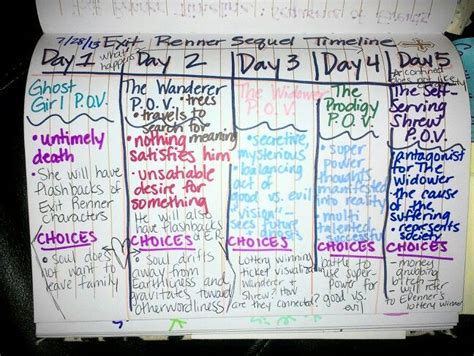 7/28/13 Exit Renner Sequel Timeline
Day 1
what happens
Ghost
Girl P.O.V.
• untimely
death
• She will have
flashbacks of
Exit Renner
characters
CHOICES
• soul does
not want to
leave family
Day 2
The Wanderer
P.O.V. • trees
• travels to
search for
meaning
• nothing
satisfies him
• unsatiable
desire for
something
He will also
have flashbacks
CHOICES
• soul drifts
away from
Earthliness and
gravitates toward
otherworldliness
Day 3
The Widower
P.O.V.
• secretive,
mysterious
• balancing
act of
good vs. evil
• "vision" -
sees future
CHOICES
Lottery winning
ticket visualized
Wanderer +
Shrew? How
are they connected?
Day 4
The
Prodigy
P.O.V.
• super
power
thoughts
manifested
into reality
• multi
talented
CHOICES
battle to
use super-
power for
good vs.
evil
Day 5
The Self-
Serving
Shrew P.O.V.
• antagonist
for The
Widower
• the cause
of the
suffering
• represents
society
CHOICES
- money
grubbing
bitch
- will refer
to ERenner's
lottery winner